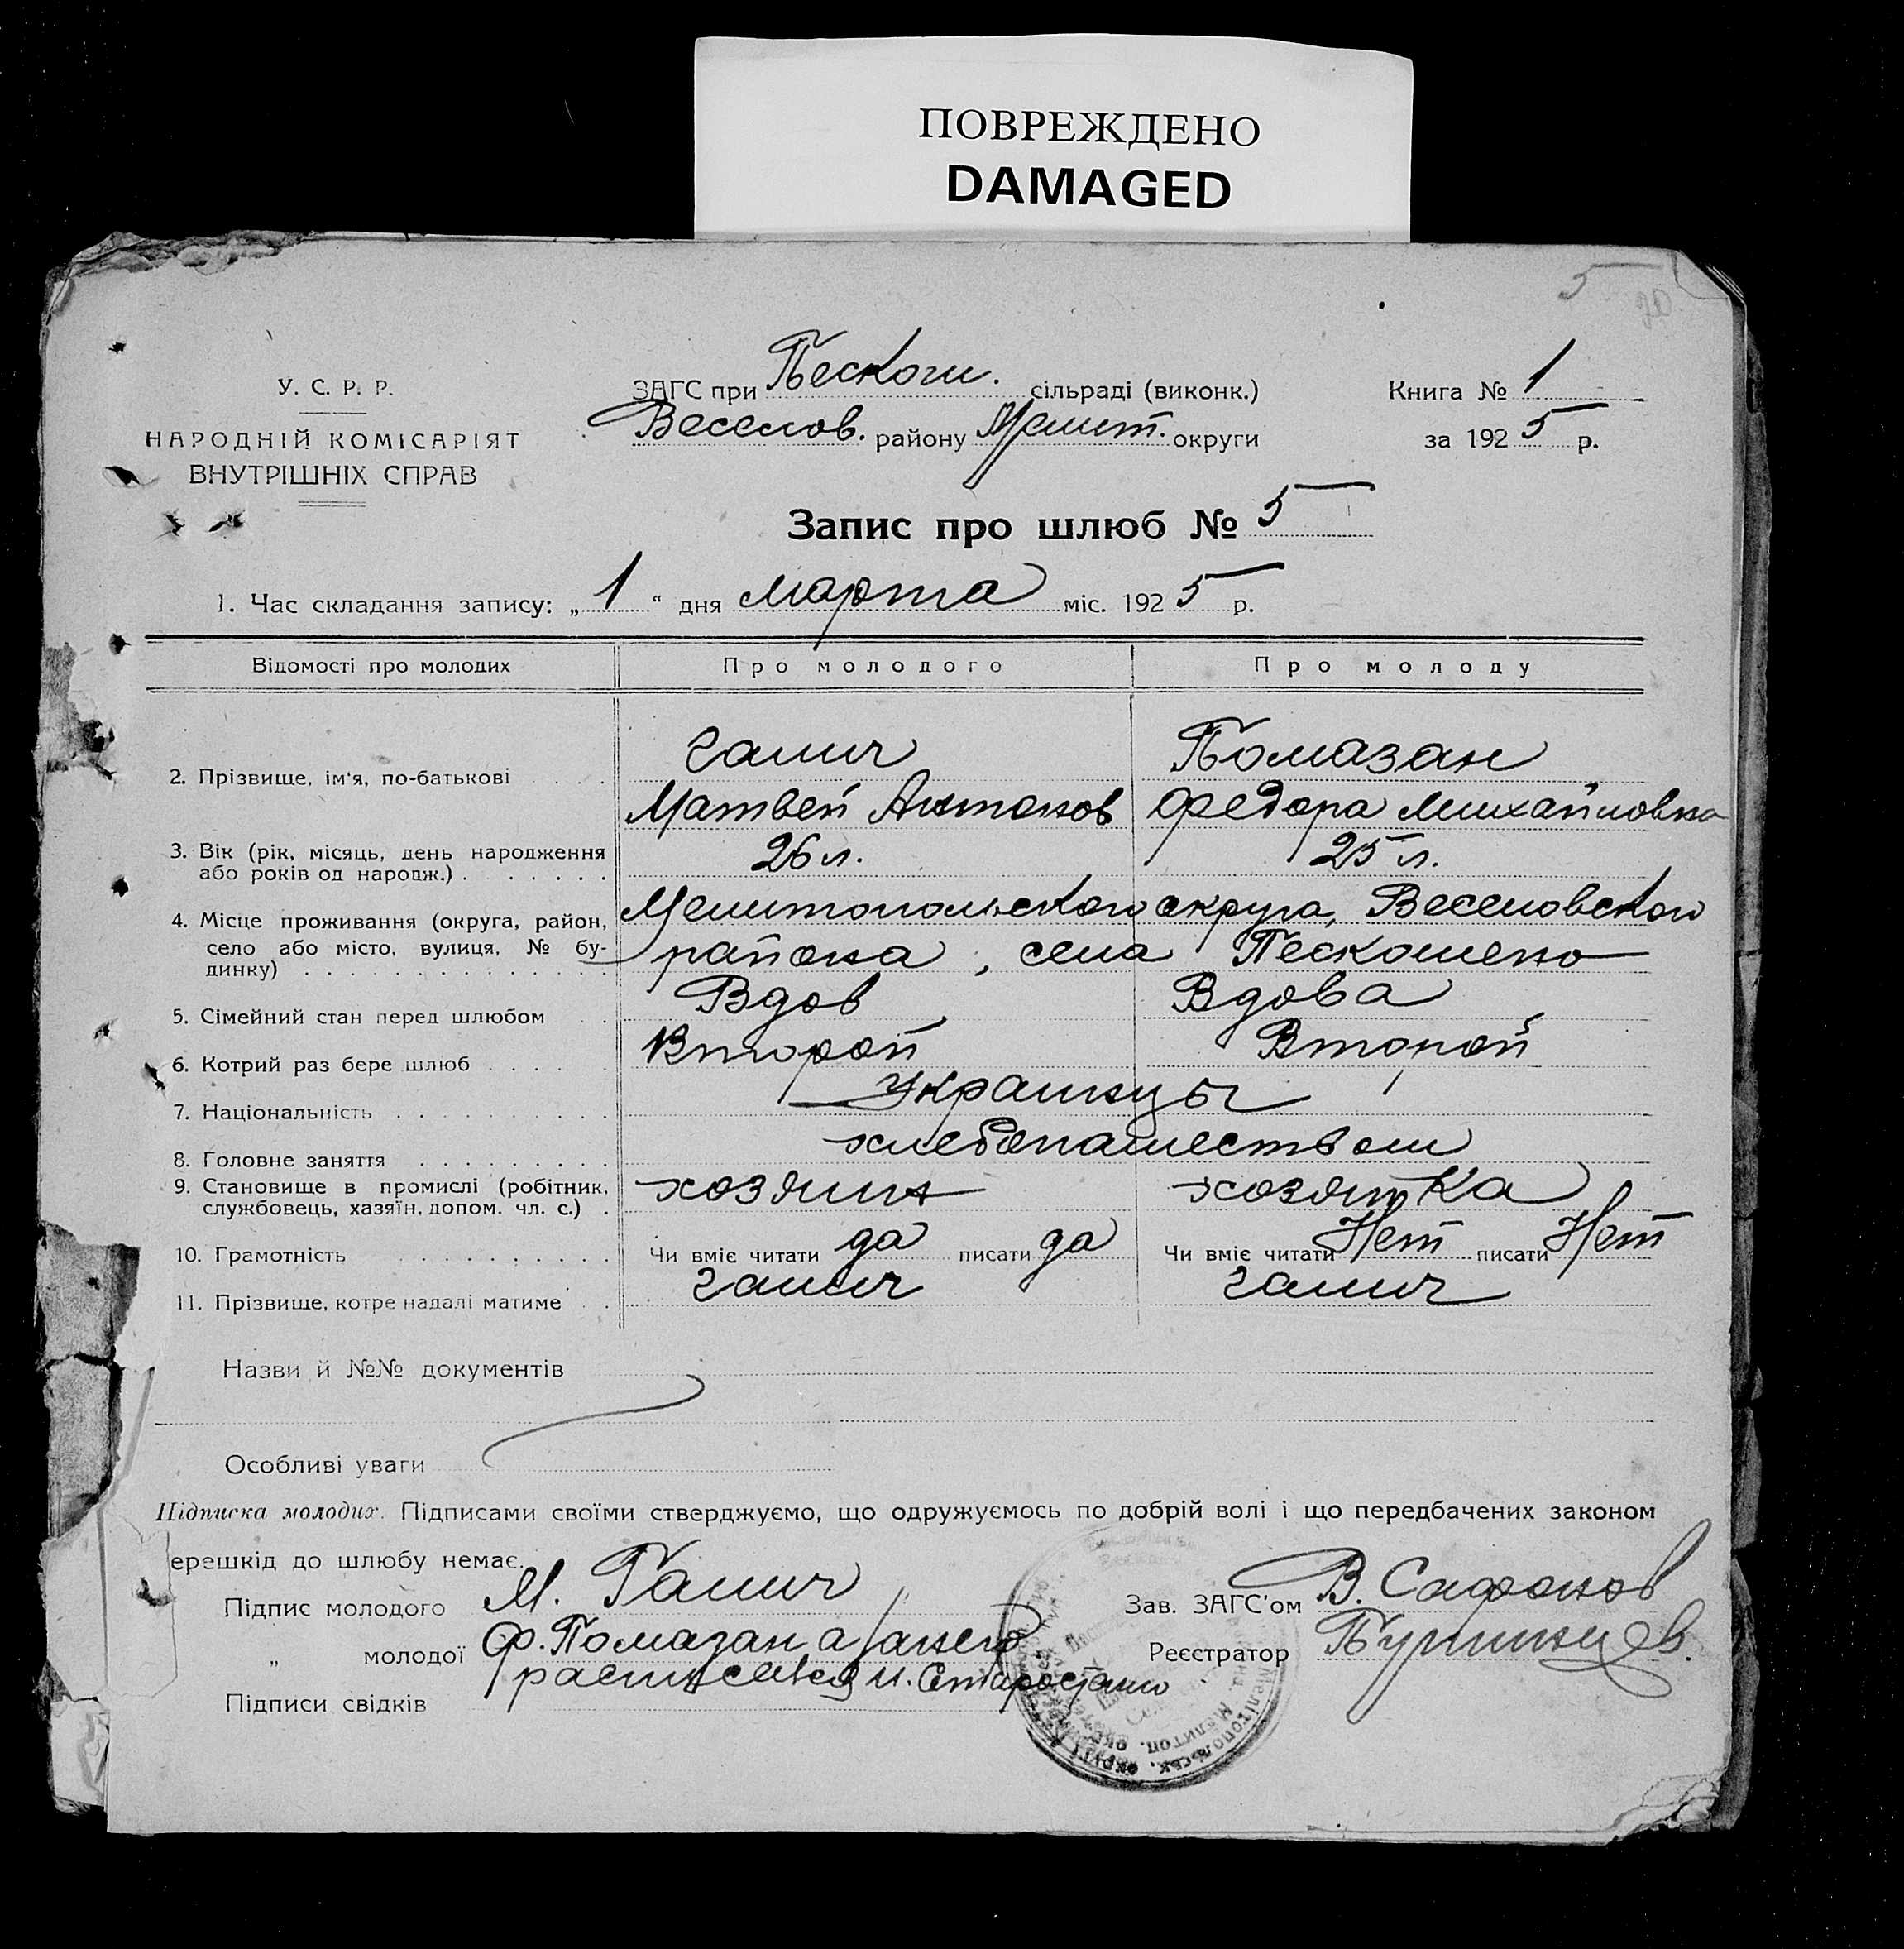 ПОВРЕЖДЕНО
DAMAGED
5
20
У. С. Р. Р.
НАРОДНІЙ КОМІСАРІЯТ
ВНУТРІШНІХ СПРАВ
ЗАГС при Пескош. сільраді (виконк.)
Веселов. району Мелит. округи
Книга № 1
за 1925 р.
Запис про шлюб № 5
1. Час складання запису: „1“ дня марта міс. 1925 р.
Відомості про молодих Про молодого Про молоду
2. Прізвище, ім'я, по-батькові Галич Помазан
Матвей Антонов Федора Михайловна
3. Вік (рік, місяць, день народження або років од народж.) 26 л. 25 л.
4. Місце проживання (округа, район, село або місто, вулиця, № будинку) Мелитопольского округа, Веселовского
района, села Пескошено
5. Сімейний стан перед шлюбом Вдов Вдова
6. Котрий раз бере шлюб Второй Второй
7. Національність Украинцы
8. Головне заняття хлебопашеством
9. Становище в промислі (робітник, службовець, хазяїн, допом. чл. с.) хозяин хозяйка
10. Грамотність Чи вміє читати да писати да Чи вміє читати Нет писати Нет
11. Прізвище, котре надалі матиме Галич Галич
Назви й №№ документів
Особливі уваги
Підписка молодих. Підписами своїми стверджуємо, що одружуємось по добрій волі і що передбачених законом
ерешкід до шлюбу немає.
Підпис молодого М. Галич Зав. ЗАГС'ом В. Сафонов
„ молодої Ф. Помазан а за нею Реєстратор
расписался
Підписи свідків